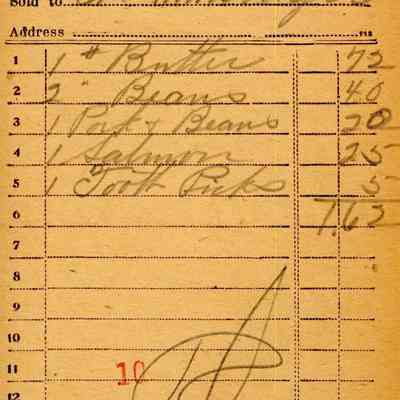 Sold to
Address
1 1 # Butter 72
2 2 " Beans 40
3 1 Pork & Beans 20
4 1 Salmon 25
5 1 Tooth Picks 5
6 1.62
7
8
9
10
11 10
12